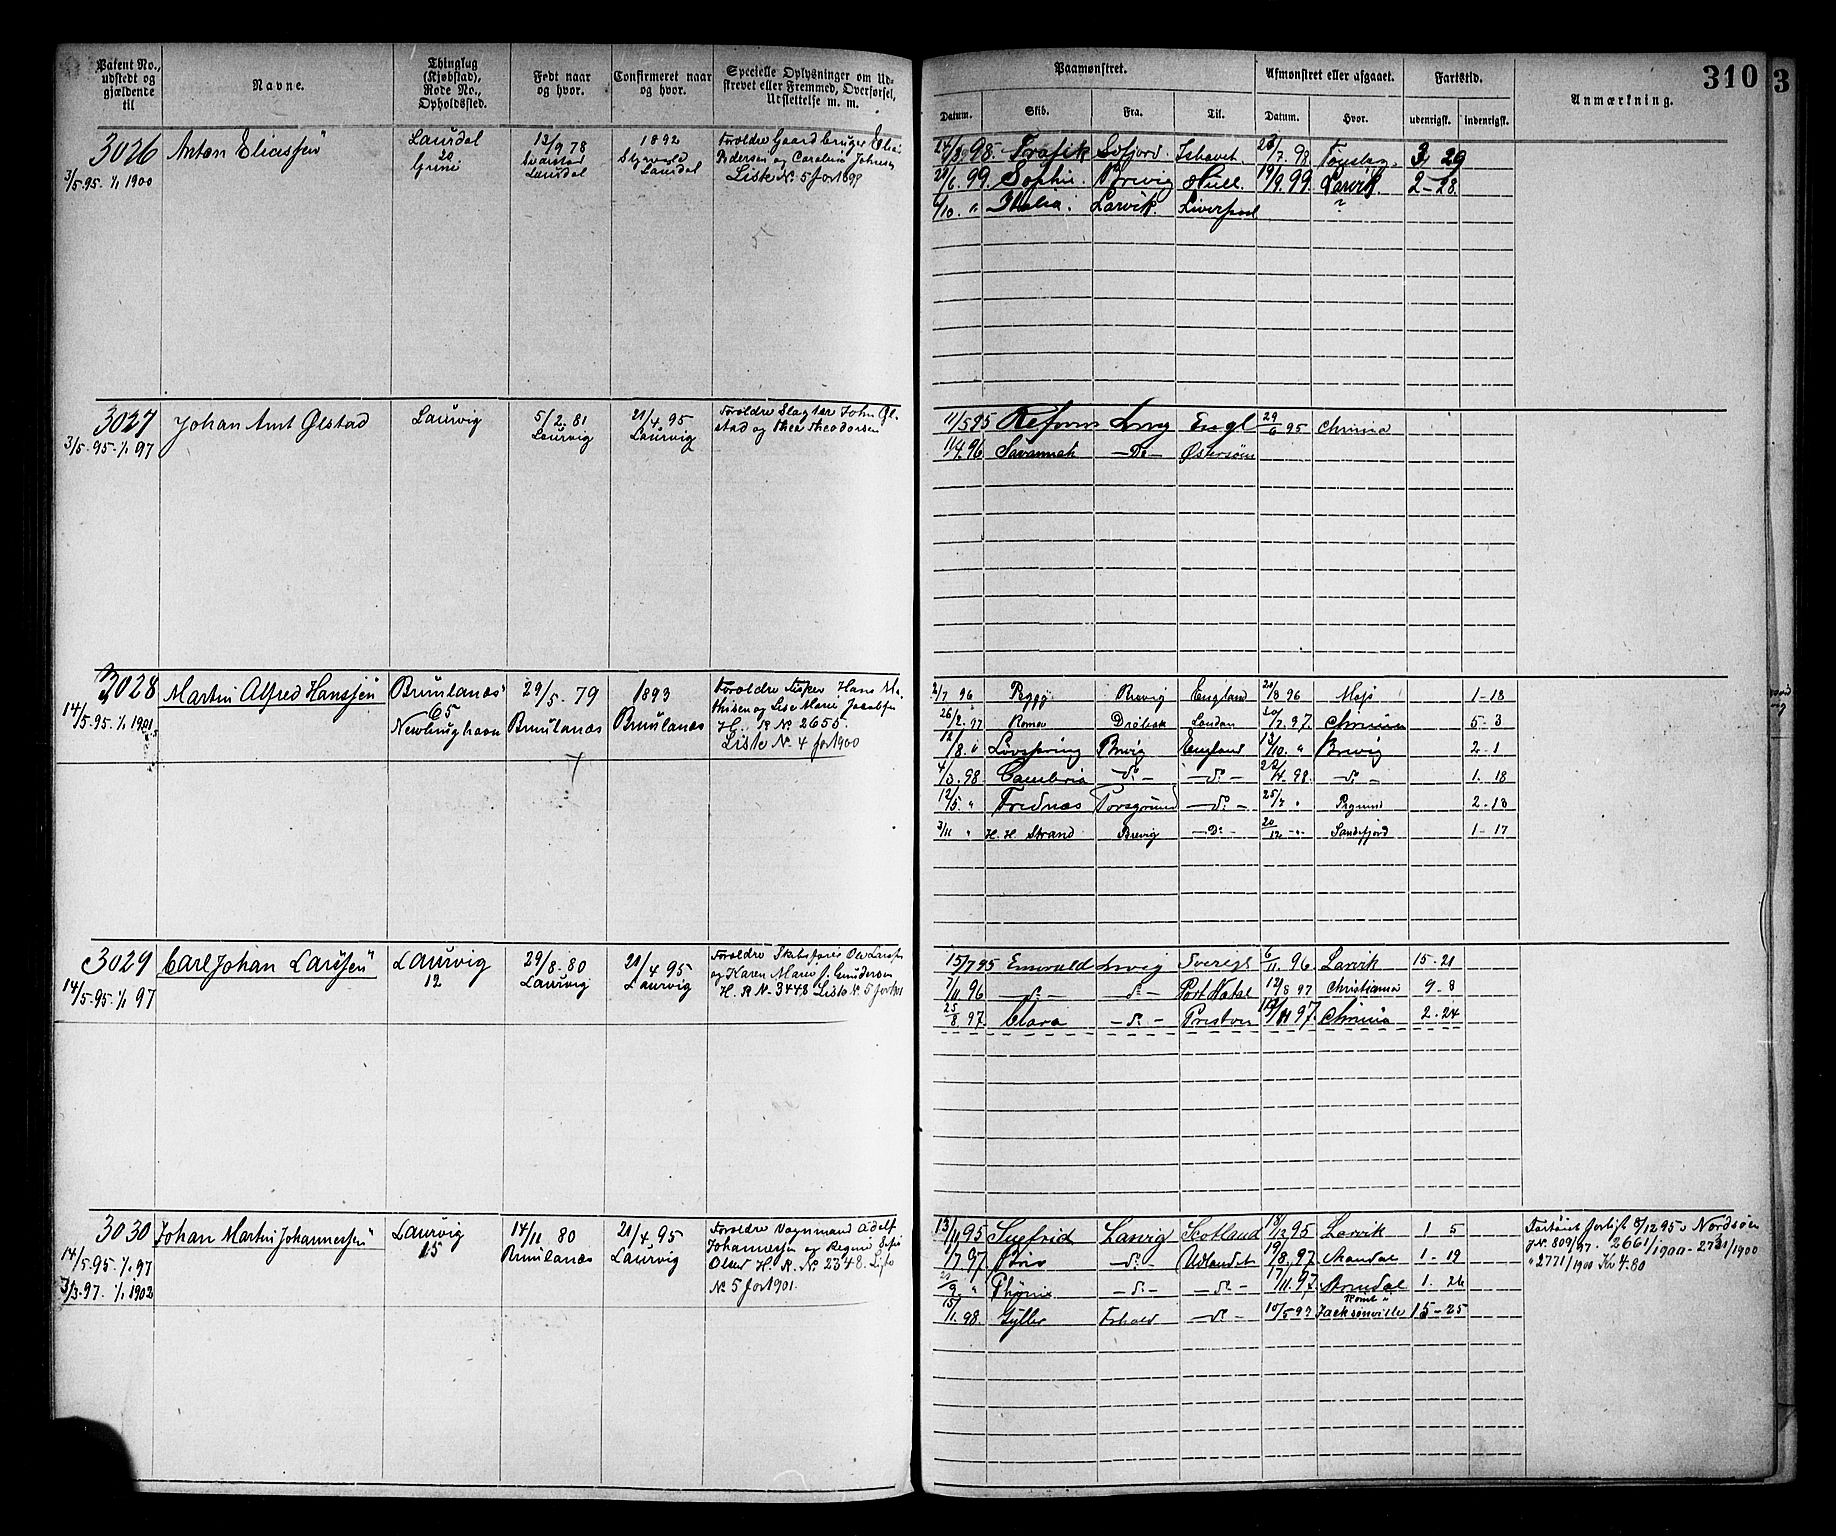 310
Patent No., udstedt og gjældende til
Navne.
Thinglag (Kjøbstad), Rode No., Opholdssted.
Født naar og hvor.
Confirmeret naar og hvor.
Specielle Oplysninger om Udstrevet eller Fremmed, Overførsel, Udslettelse m. m.
Paamønstret.
Datum. Skib. Fra. Til.
Afmønstret eller afgaaet.
Datum. Hvor.
Fartstid.
udenrigsk. indenrigsk.
Anmærkning.
3026 Anton Eliassen Laurdal 12/9 78 1892 Forældre Gaardbruger Elias
20 Grini Laurdal Laurdal Pedersen og Caroline Johnsen
3/5.95. 1/1 1900 Liste No. 5 for 1899
98. Trafik Ishavet 7. 98 3 29
6. 99. Sophie Brevig Hull. 19/9. 99 Larvik 2-28
/10. " Italia. Larvik. Liverpool ?
3027 Johan Amt Ølstad Laurvig 5/2. 81 21/4. 95 Forældre Slagter John Øl-
Laurvig Laurvig stad og Thea Theodorsen
3/5-95-1/1 97
11/5 95 Reform Lvrg Engl 29/6 95 Chrania
96 Savannah -Do- Østersøen
3028 Martin Alfred Hanssen Brunlanæs 29/5. 79 1893 Forældre Fisker Hans Ma-
65 Brunlanæs Brunlanæs thisen og Lise Marie Jacobsen
14/5.95. 1/1 1901 H. R. No. 2655.
Liste No. 4 for 1900
2/7 96 Peggy Brevig England 20/8 96 Moss 1-18
26/2. 97 Roma Drøbak London 20/7. 97. Chrania 5-3
12/8. " Løvspring Brevig England 13/10. " Brevig 2-1
4/3. 98. Cambria -do- -do- 22/4. 98. -do- 1. 18
12/5. " Frednæs Porsgrund -do- 25/7 " Pgrund 2-13
3/11 " H. H. Strand Brevig -Do- 20/12 -"- Sandefjord 1-17
3029 Carl Johan Larssen Laurvig 29/8. 80 21/4. 95 Forældre Skibsfører Ole Larssen
12 Laurvig Laurvig og Karen Marie J. Gundersen
14/5-95-1/1 97 H. R. No. 3448 Liste No. 5 for 1901
15/7 95 Emerald Lrvig Sverige 6/11. 96. Larvik 15-21
7/11 96 -do- -do- Port Natal 12/8 97 Christiania 9-8
25/8 97. Clara -do- Preston /11 97. Chrania 2-24
3030 Johan Martin Johannessen Laurvig 14/11 80 21/4. 95 Forældre Vognmand Adolf
15 Brunlanæs Laurvig Johannessen og Regine Sofie
14/5-95-1/1 97 Olsen H. R. No. 2348. Liste
3/3.97. 1/1 1902 No. 5 for 1901.
13/11 95 Sigfrid Larvig Scotland 18/12 95 Larvik 1 5
1/7 97 Brio -do- Udlandet 19/8. 97. Mandal 1-19
/9. " Phønix -do- -do- 17/11. 97. Arendal 1. 26
15/1. 98. Gyller -do- 10/5 99 Jacksonville 15-25
Fartøiet forlist 8/12 95 i Nordsøen
J. No. 809/97. 2661/1900-2731/1900
" 2771/1900 Kr 4.80